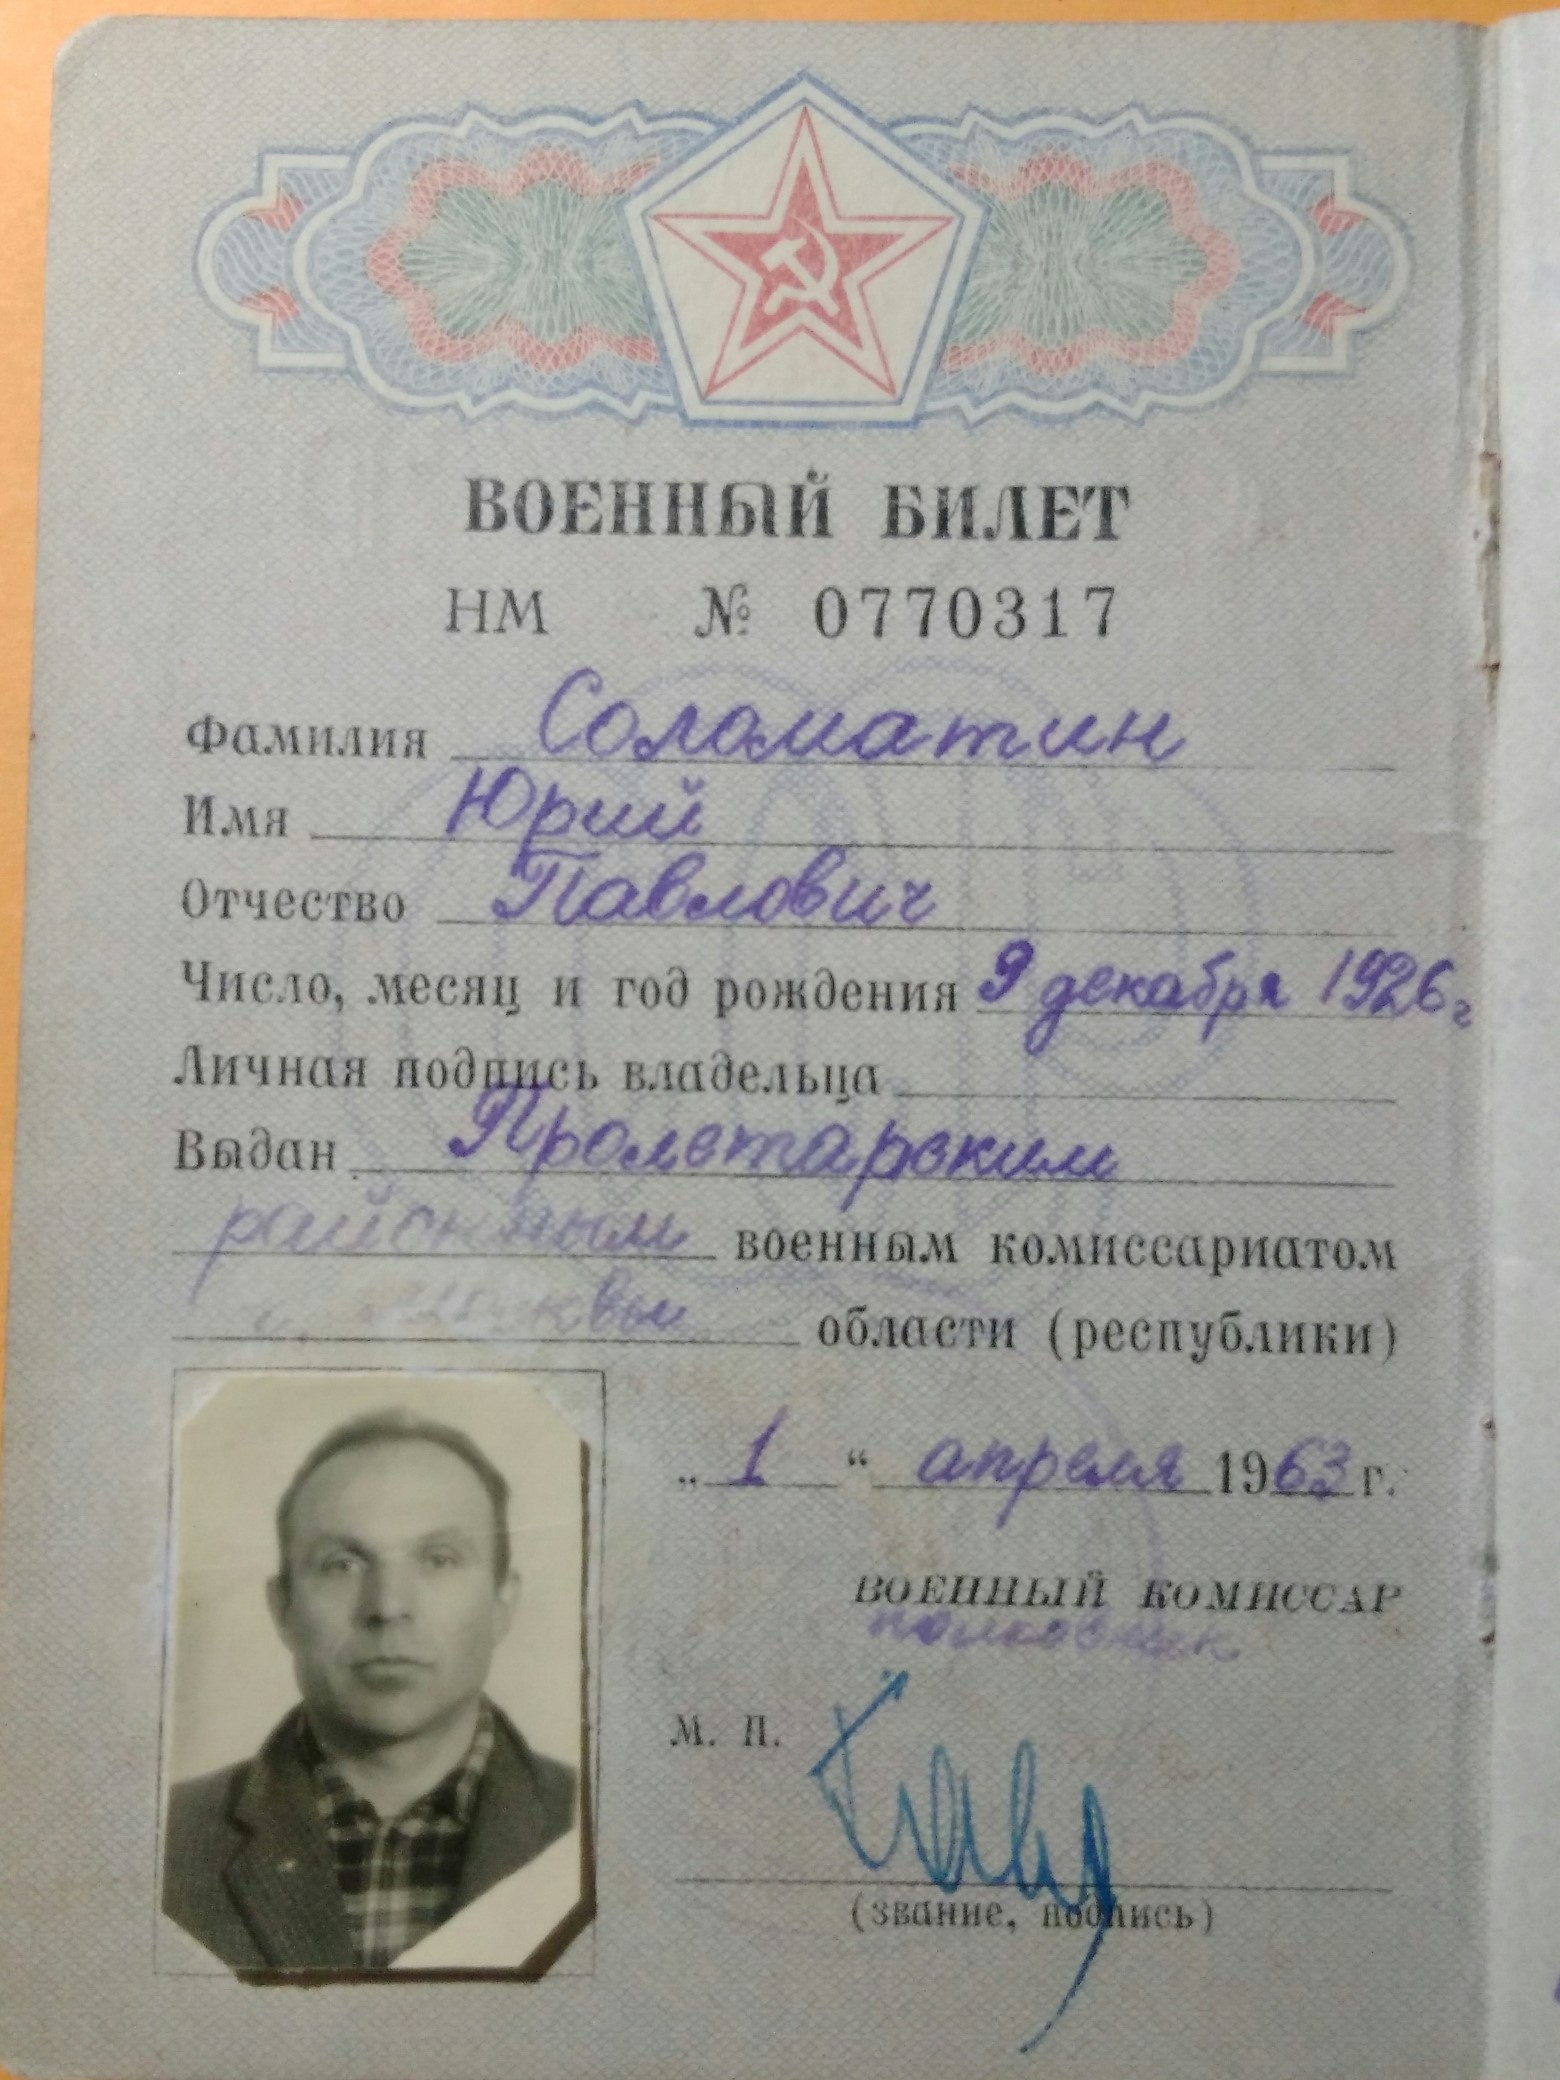 ВОЕННЫЙ БИЛЕТ
НМ № 0770317
Фамилия Соломатин
Имя Юрий
Отчество Павлович
Число, месяц и год рождения 9 декабря 1926 г
Личная подпись владельца
Выдан Пролетарским
районным военным комиссариатом
области (республики)
„ 1 “ апреля 1963 г.
ВОЕННЫЙ КОМИССАР
полковник
М. П.
(звание, подпись)